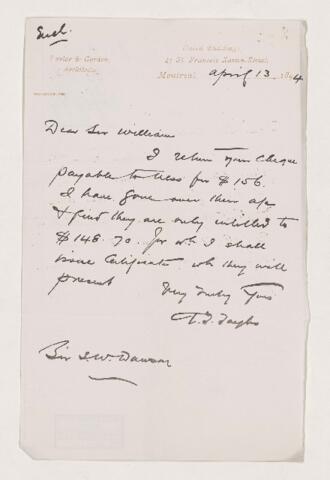 Encl.
Taylor & Gordon,
Architects.
Union Buildings,
43 St. Francois Xavier Street,
Montreal, April 13 1894
Dear Sir William
I return your cheque
payable to Mess for $156.
I have gone over their a/c
& find they are only entitled to
$148.70. for wh I shall
issue Certificate wh they will
present
Very truly Yours
A. T. Taylor
Sir J. W. Dawson